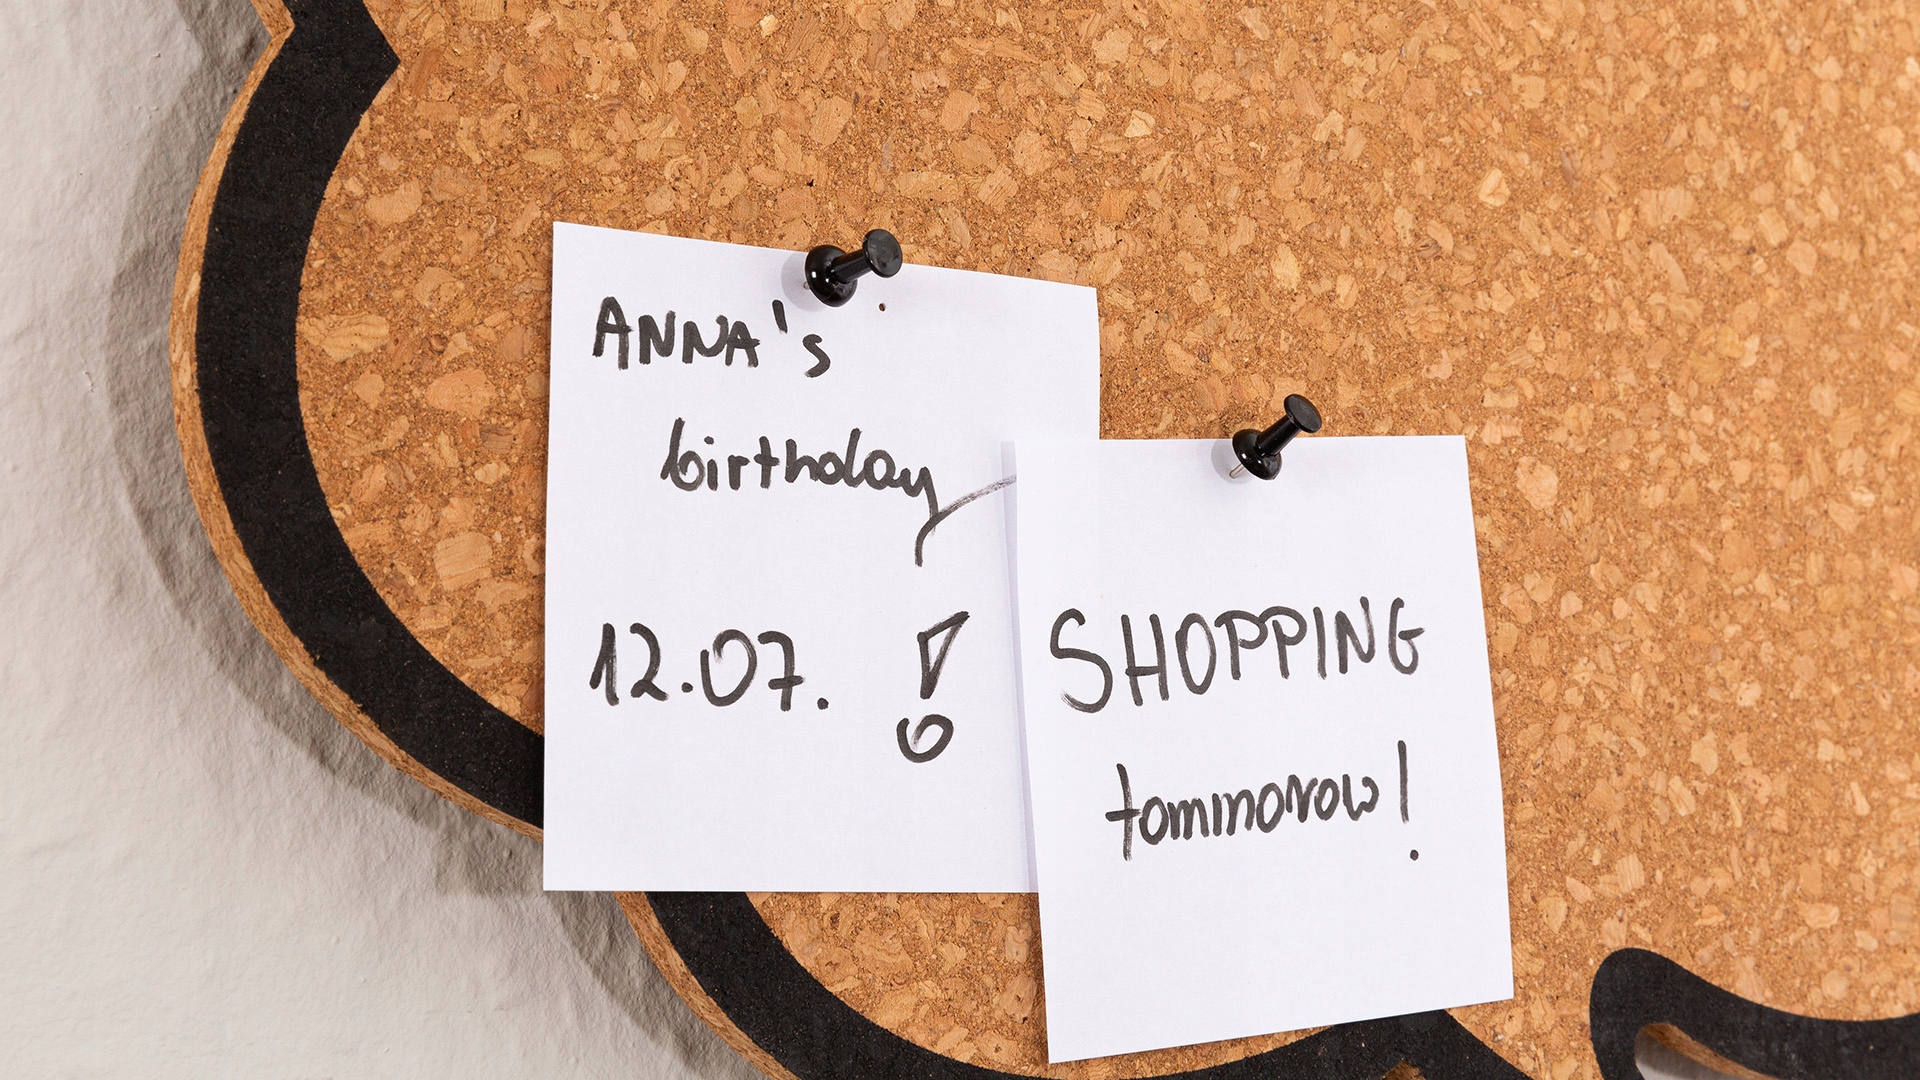 ANNA's
birthday
12.07. !
SHOPPING
tommorow!